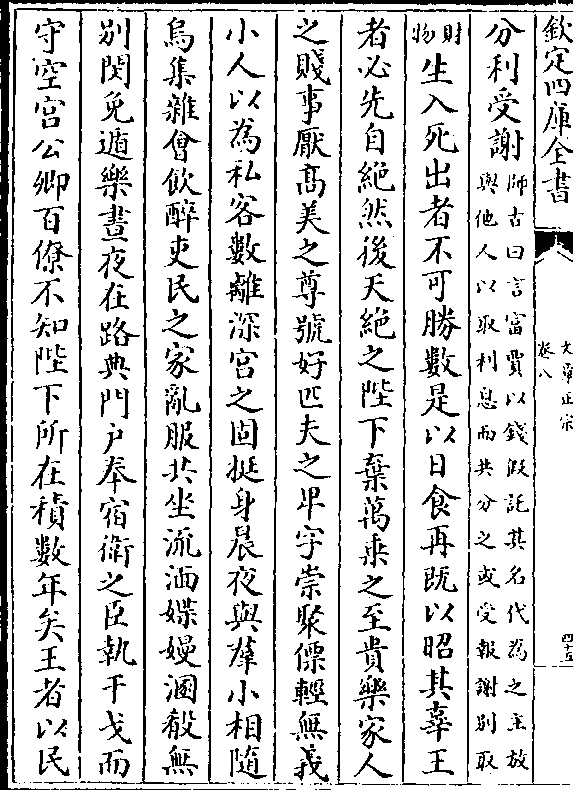 欽定四庫全書
文章正宗
卷八
四十五
分利受謝師古曰言富賈以錢假託其名代為之主放與他人以取利息而共分之或受報謝別取
財物生入死出者不可勝數是以日食再既以昭其辜王
者必先自絕然後天絕之陛下棄萬乗之至貴樂家人
之賤事厭髙美之尊號好匹夫之卑字崇聚僄輕無義
小人以為私客數離深宮之固挺身晨夜與羣小相隨
烏集雜㑹飲醉吏民之家亂服共坐流湎媟嫚溷殽無
別閔免遁樂晝夜在路典門户奉宿衛之臣執干戈而
守空宮公卿百僚不知陛下所在積數年矣王者以民